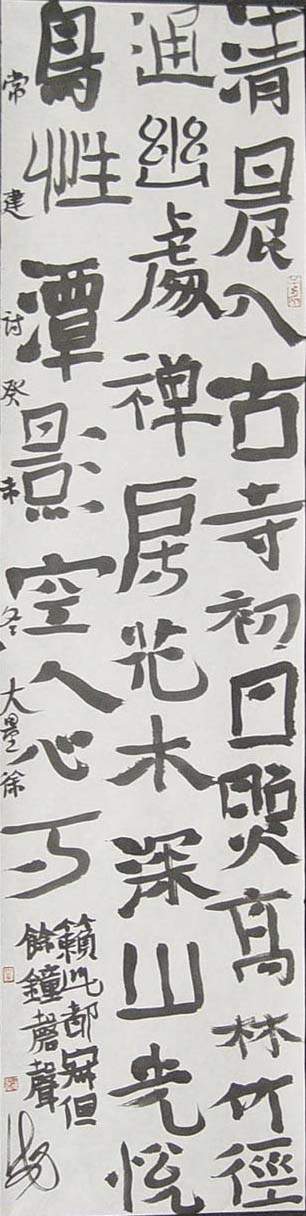 清晨入古寺初日照高林竹徑
通幽處禅房花木深山光悅
鳥性潭影空人心万
籟此都寂但
餘鐘磬聲
常建詩癸未冬大墨徐